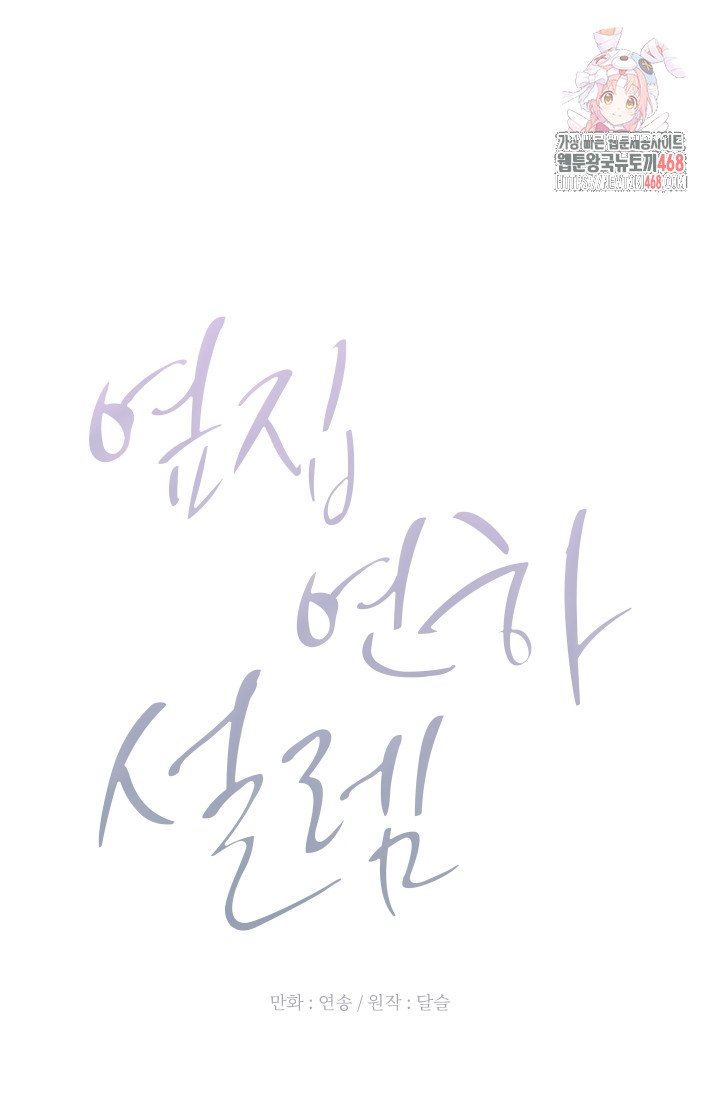 가장 빠른 웹툰제공사이트
웹툰왕국뉴토끼468
HTTPS://NEWTOKI468.COM
옆집
연하
설렘
만화 : 연송 / 원작 : 달슬